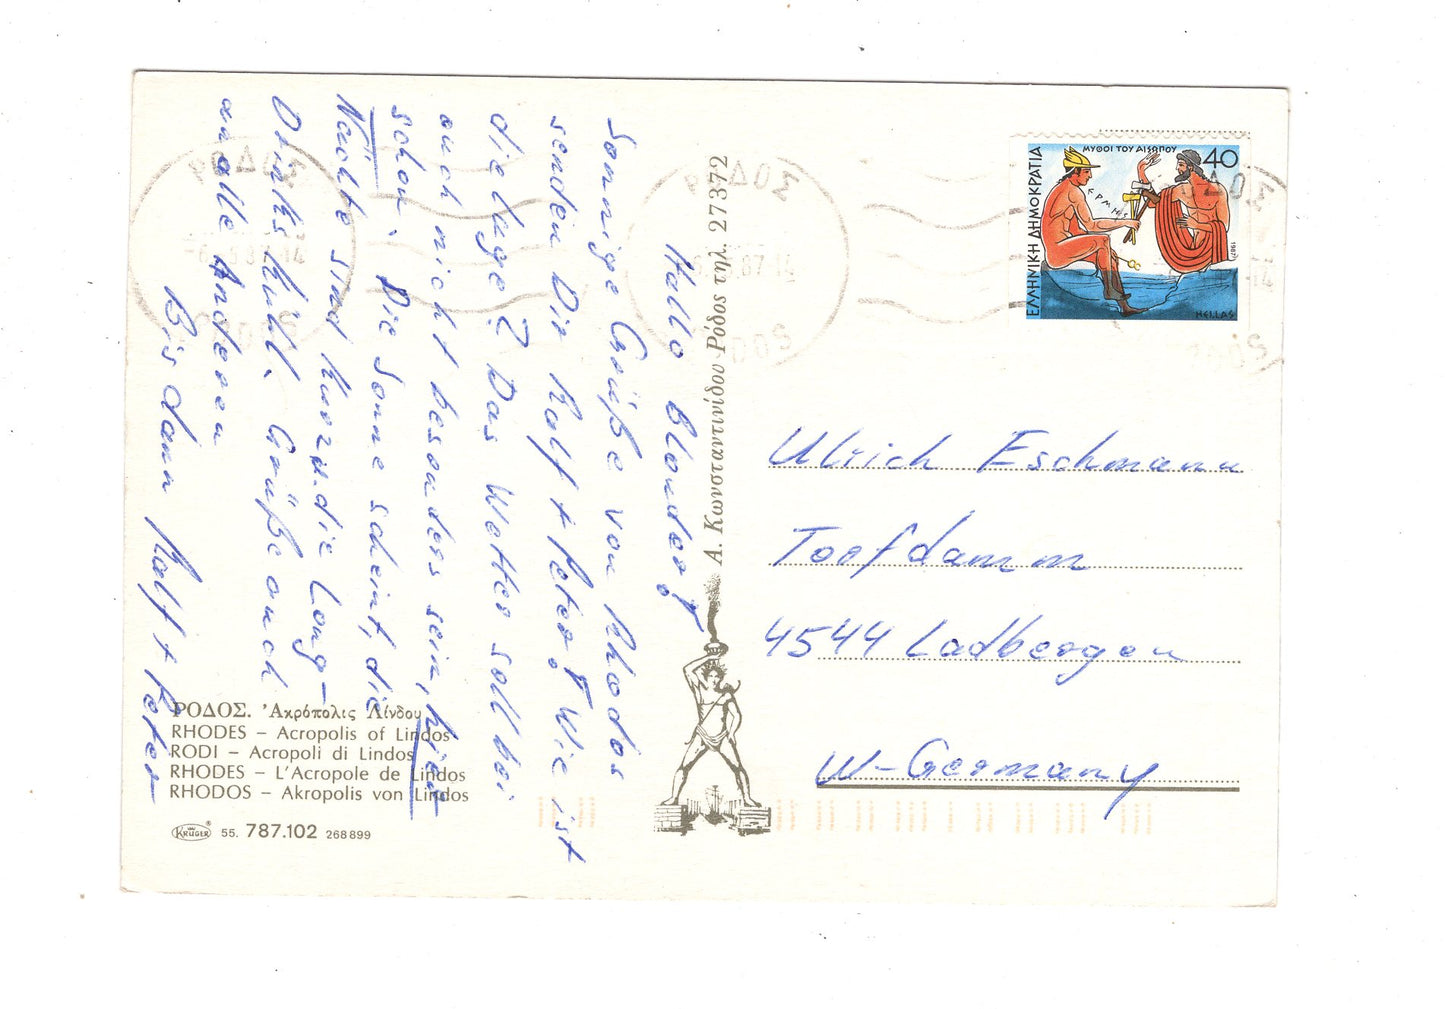 Hallo Blonder!
Sonnige Grüße von Rhodos
senden Dir Ralf + Peter! Wie ist
die Lage? Das Wetter soll bei
euch nicht besonders sein, hier
schon. Die Sonne scheint, die
Nächte sind kurz u. die Long-
Drinks kühl. Grüße auch
an alle Anderen
Bis dann Ralf + Peter
Α. Κωνσταντινίδου Ρόδος τηλ. 27372
ΡΟΔΟΣ. Ἀκρόπολις Λίνδου
RHODES – Acropolis of Lindos
RODI – Acropoli di Lindos
RHODES – L'Acropole de Lindos
RHODOS – Akropolis von Lindos
KRÜGER® 55. 787.102 268 899
ΕΛΛΗΝΙΚΗ ΔΗΜΟΚΡΑΤΙΑ
ΜΥΘΟΙ ΤΟΥ ΑΙΣΩΠΟΥ
40
ΕΡΜΗΣ
1987
HELLAS
ΡΟΔΟΣ
Ulrich Eschmann
Toofdamm
4544 Ladbergen
W-Germany